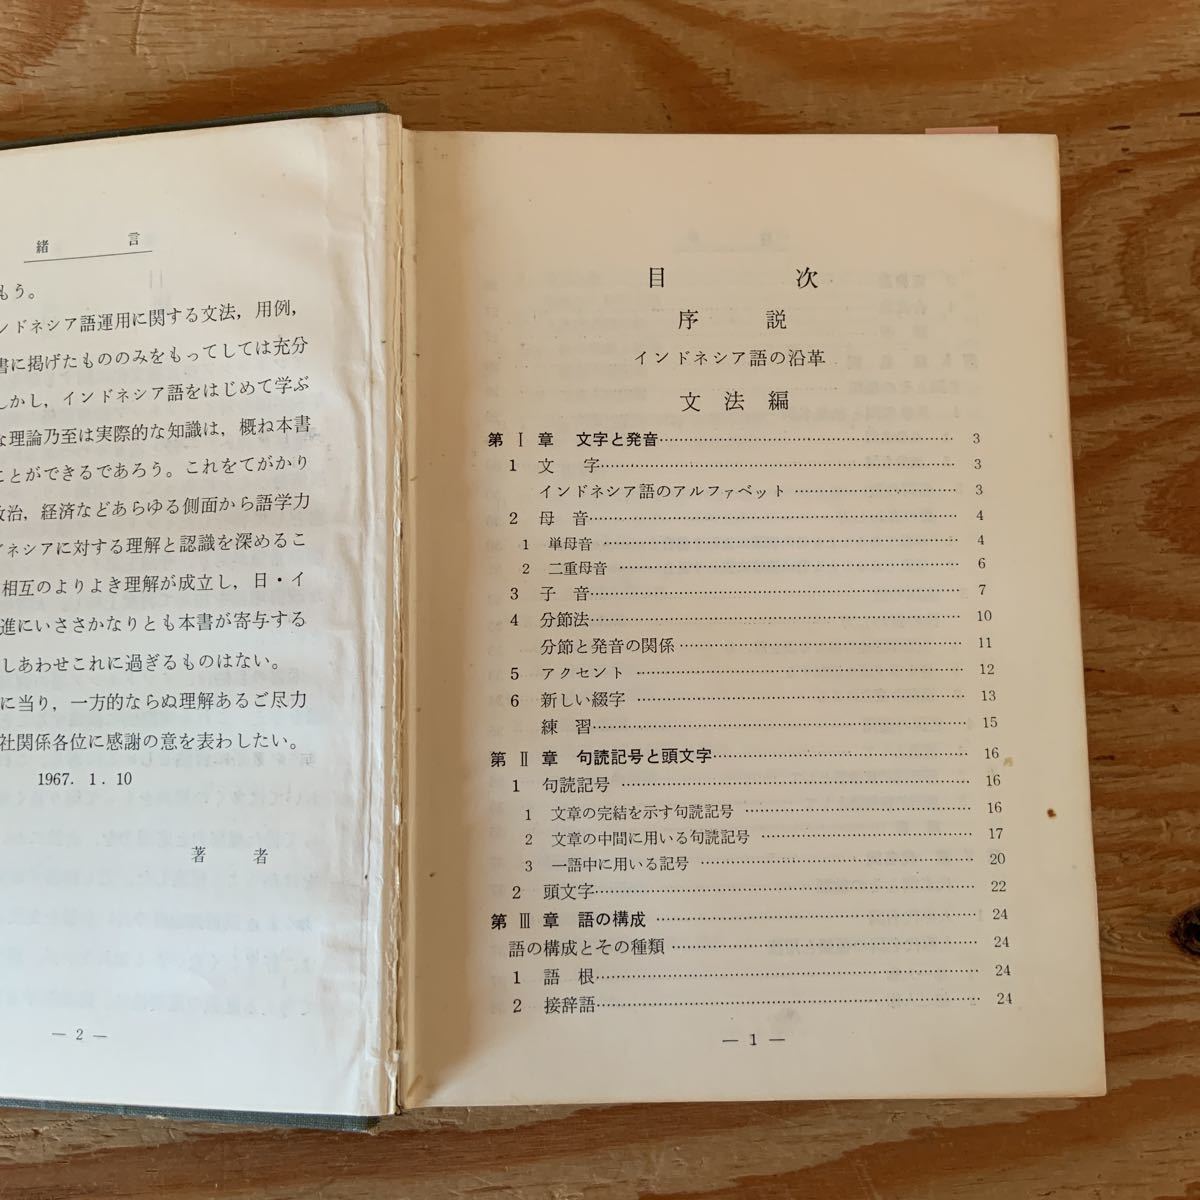 緒言
もう。
ンドネシア語運用に関する文法，用例，
書に掲げたもののみをもってしては充分
しかし，インドネシア語をはじめて学ぶ
な理論乃至は実際的な知識は，概ね本書
ことができるであろう。これをてがかり
政治，経済などあらゆる側面から語学力
ドネシアに対する理解と認識を深めるこ
相互のよりよき理解が成立し，日・イ
進にいささかなりとも本書が寄与する
しあわせこれに過ぎるものはない。
に当り，一方的ならぬ理解あるご尽力
社関係各位に感謝の意を表わしたい。
1967. 1. 10
著者
— 2 —
目次
序説
インドネシア語の沿革
文法編
第Ⅰ章 文字と発音……………………………………… 3
1 文字……………………………………… 3
インドネシア語のアルファベット……………………… 3
2 母音……………………………………… 4
1 単母音……………………………………… 4
2 二重母音……………………………………… 6
3 子音……………………………………… 7
4 分節法……………………………………… 10
分節と発音の関係……………………………………… 11
5 アクセント……………………………………… 12
6 新しい綴字……………………………………… 13
練習……………………………………… 15
第Ⅱ章 句読記号と頭文字……………………………… 16
1 句読記号……………………………………… 16
1 文章の完結を示す句読記号……………………… 16
2 文章の中間に用いる句読記号……………………… 17
3 一語中に用いる記号……………………………… 20
2 頭文字……………………………………… 22
第Ⅲ章 語の構成……………………………………… 24
語の構成とその種類……………………………………… 24
1 語根……………………………………… 24
2 接辞語……………………………………… 24
— 1 —